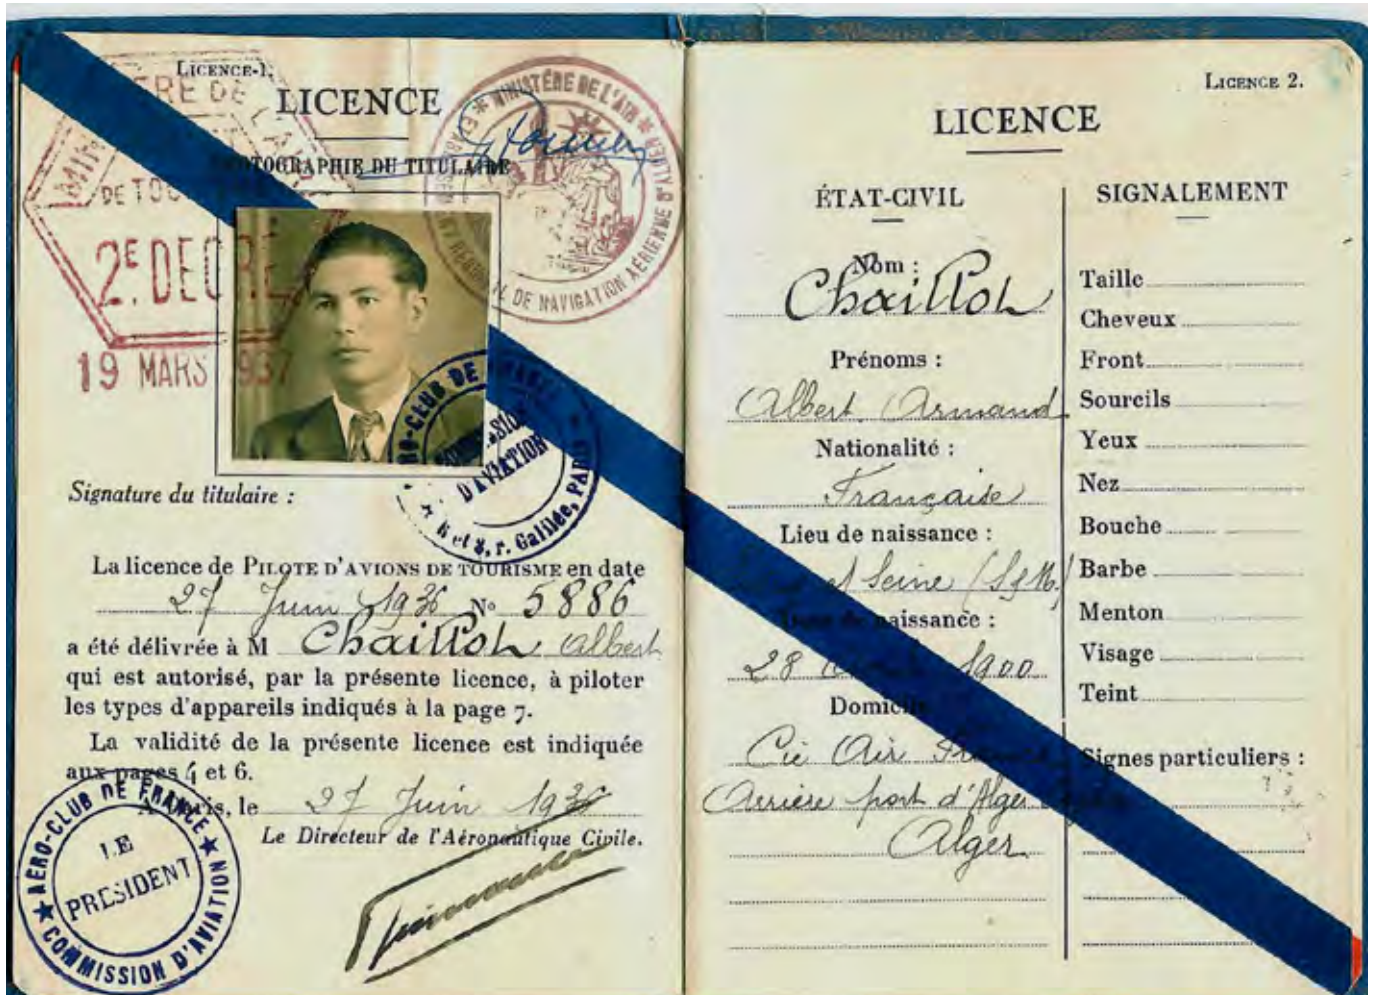 LICENCE-1.
LICENCE
PHOTOGRAPHIE DU TITULAIRE
MINISTÈRE DE L'AIR
DE NAVIGATION AÉRIENNE D'ALGER
DE TOU
2E DEGRÉ
19 MARS 1937
AERO-CLUB DE FRANCE
D'AVIATION
6 et 8, r. Galilée, PARIS
Signature du titulaire :
La licence de PILOTE D'AVIONS DE TOURISME en date
27 Juin 1936 No 5886
a été délivrée à M Chaillot Albert
qui est autorisé, par la présente licence, à piloter
les types d'appareils indiqués à la page 7.
La validité de la présente licence est indiquée
aux pages 4 et 6.
A Paris, le 27 Juin 1936
Le Directeur de l'Aéronautique Civile.
AÉRO-CLUB DE FRANCE
LE
PRESIDENT
COMMISSION D'AVIATION
LICENCE 2.
LICENCE
ÉTAT-CIVIL
Nom :
Chaillot
Prénoms :
Albert Armand
Nationalité :
Française
Lieu de naissance :
et Seine (S&M.)
Date de naissance :
28 1900
Domicile
Cie Air France
Arrière port d'Alger
Alger
SIGNALEMENT
Taille
Cheveux
Front
Sourcils
Yeux
Nez
Bouche
Barbe
Menton
Visage
Teint
Signes particuliers :